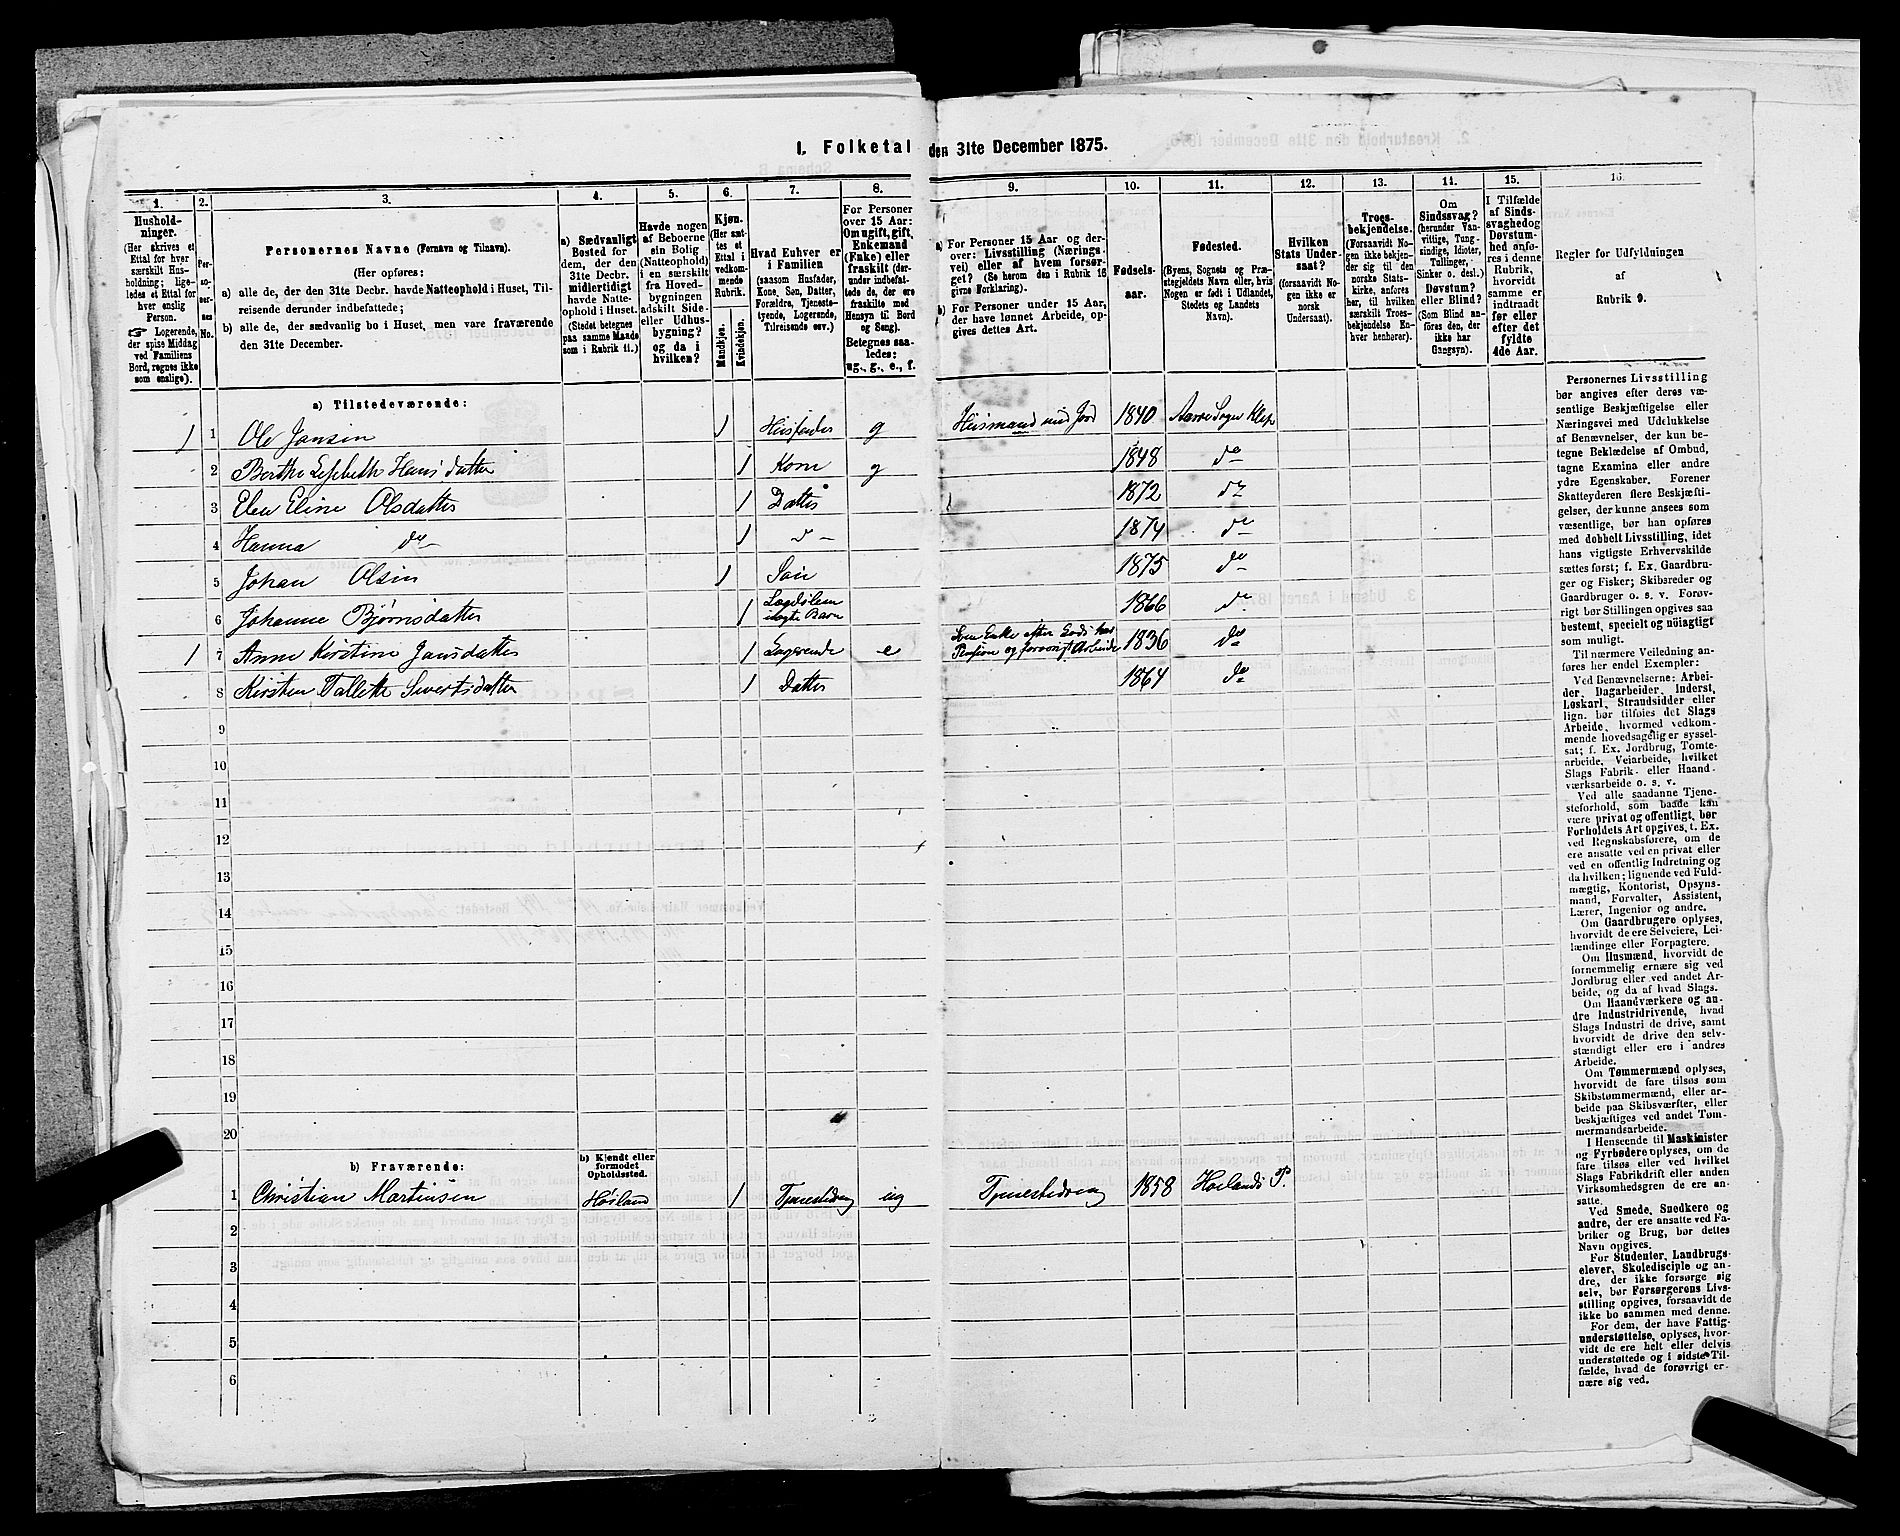 I. Folketal den 31te December 1875.
1. 2. 3. 4. 5. 6. 7. 8. 9. 10. 11. 12. 13. 14. 15. 16.
Hushold-
ninger.
(Her skrives et
Ettal for hver
særskilt Hus-
holdning; lige-
ledes et Ettal for
hver enslig
Person.
☞ Logerende,
der spise Middag
ved Familiens
Bord, regnes ikke
som enslige).
Per-
so-
ner-
nes
No.
Personernes Navne (Fornavn og Tilnavn).
(Her opføres:
a) alle de, der den 31te Decbr. havde Natteophold i Huset, Til-
reisende derunder indbefattede;
b) alle de, der sædvanlig bo i Huset, men vare fraværende
den 31te December.
a) Sædvanligt
Bosted for
dem, der den
31te Decbr.
midlertidigt
havde Natte-
ophold i Huset.
(Stedet betegnes
paa samme Maade
som i Rubrik 11.)
Havde nogen
af Beboerne
sin Bolig
(Natteophold)
i en særskilt
fra Hoved-
bygningen
adskilt Side-
eller Udhus-
bygning?
og da i
hvilken?
Kjøn.
(Her sæt-
tes et
Ettal i
vedkom-
mende
Rubrik.
Mandkjøn.
Kvindekjøn.
Hvad Enhver er
i Familien
(saasom Husfader,
Kone, Søn, Datter,
Forældre, Tjeneste-
tyende, Logerende,
Tilreisende osv.)
For Personer
over 15 Aar:
Om ugift, gift,
Enkemand
(Enke) eller
fraskilt (der-
under indbefat-
tede de, der ere
fraskilte med
Hensyn til Bord
og Seng).
Betegnes saa-
ledes:
ug., g., e., f.
a) For Personer 15 Aar og der-
over: Livsstilling (Nærings-
vei) eller af hvem forsør-
get? (Se herom den i Rubrik 16
givne Forklaring).
b) For Personer under 15 Aar,
der have lønnet Arbeide, op-
gives dettes Art.
Fødsels-
aar.
Fødested.
(Byens, Sognets og Præ-
stegjeldets Navn eller, hvis
Nogen er født i Udlandet,
Stedets og Landets
Navn).
Hvilken
Stats Under-
saat?
(forsaavidt No-
gen ikke er
norsk
Undersaat).
Troes-
bekjendelse.
(Forsaavidt No-
gen ikke bekjen-
der sig til den
norske Stats-
kirke, anføres
her, til hvilken
særskilt Troes-
bekjendelse En-
hver henhører).
Om
Sindssvag?
(herunder Van-
vittige, Tung-
sindige, Idioter,
Tullinger,
Sinker o. desl.)
Døvstum?
eller Blind?
(Som Blind an-
føres den, der
ikke har
Gangsyn).
I Tilfælde
af Sinds-
svaghed og
Døvstum-
hed anfø-
res i denne
Rubrik,
hvorvidt
samme er
indtraadt
før eller
efter det
fyldte
4de Aar.
Regler for Udfyldningen
af
Rubrik 9.
a) Tilstedeværende:
1 1 Ole Jansen 1 Husfader g Huusmand med Jord 1840 Aarre Sogn Klep
2 Berthe Lisebeth Hansdatter 1 Kone g 1848 do
3 Elen Eline Olsdatter 1 Datter 1872 do
4 Hanna do 1 do 1874 do
5 Johan Olsen 1 Søn 1875 do
6 Johanne Bjørnsdatter 1 Barn 1866 do
1 7 Anne Kirstine Jansdatter 1 Logerende e Enke efter Lods har Pension og forøvrigt Arbeide 1836 do
8 Kirsten Tallette Sivertsdatter 1 Datter 1864 do
9
10
11
12
13
14
15
16
17
18
19
20
b) Fraværende:
b) Kjendt eller
formodet
Opholdssted.
1 Christian Martinsen Høiland 1 Tjenestedreng ug Tjenestedreng 1858 Høilands P.
2
3
4
5
6
Personernes Livsstilling
bør angives efter deres væ-
sentlige Beskjæftigelse eller
Næringsvei med Udelukkelse
af Benævnelser, der kun be-
tegne Beklædelse af Ombud,
tagne Examina eller andre
ydre Egenskaber. Forener
Skatteyderen flere Beskjæfti-
gelser, der kunne ansees som
væsentlige, bør han opføres
med dobbelt Livsstilling, idet
hans vigtigste Erhvervskilde
sættes først; f. Ex. Gaardbru-
ger og Fisker; Skibsreder og
Gaardbruger o. s. v. Forøv-
rigt bør Stillingen opgives saa
bestemt, specielt og nöiagtigt
som muligt.
Til nærmere Veiledning an-
føres her endel Exempler:
Ved Benævnelserne: Arbei-
der, Dagarbeider, Inderst,
Løskarl, Strandsidder eller
lign. bør tilføies det Slags
Arbeide, hvormed vedkom-
mende hovedsagelig er syssel-
sat; f. Ex. Jordbrug, Tomte-
arbeide, Veiarbeide, hvilket
Slags Fabrik- eller Haand-
værksarbeide o. s. v.
Ved alle saadanne Tjene-
steforhold, som baade kan
være privat og offentligt, bør
Forholdets Art opgives, t. Ex.
ved Regnskabsførere, om de
ere ansatte ved en privat eller
ved en offentlig Indretning og
da hvilken; lignende ved Fuld-
mægtig, Kontorist, Opsyns-
mand, Forvalter, Assistent,
Lærer, Ingeniør og andre.
Om Gaardbrugere oplyses,
hvorvidt de ere Selveiere, Lei-
lændinge eller Forpagtere.
Om Husmænd, hvorvidt de
fornemmelig ernære sig ved
Jordbrug eller ved andet Ar-
beide, og da af hvad Slags.
Om Haandværkere og an-
dre Industridrivende, hvad
Slags Industri de drive, samt
hvorvidt de drive den selv-
stændigt eller ere i andres
Arbeide.
Om Tømmermænd oplyses,
hvorvidt de fare tilsøs som
Skibstømmermænd, eller ar-
beide paa Skibsværfter, eller
beskjæftiges ved andet Tøm-
mermandsarbeide.
I Henseende til Maskinister
og Fyrbødere oplyses, om de
fare tilsøs eller ved hvilket
Slags Fabrikdrift eller anden
Virksomhedsgren de ere an-
satte.
Ved Smede, Snedkere og
andre, der ere ansatte ved Fa-
briker og Brug, bør dettes
Navn opgives.
For Studenter, Landbrugs-
elever, Skoledisciple og an-
dre, der ikke forsørge sig
selv, bør Forsørgerens Livs-
stilling opgives, forsaavidt de
ikke bo sammen med denne.
For dem, der have Fattig-
understøttelse, oplyses, hvor-
vidt de ere helt eller delvis
understøttede og i sidste Til-
fælde, hvad de forøvrigt er-
nære sig ved.